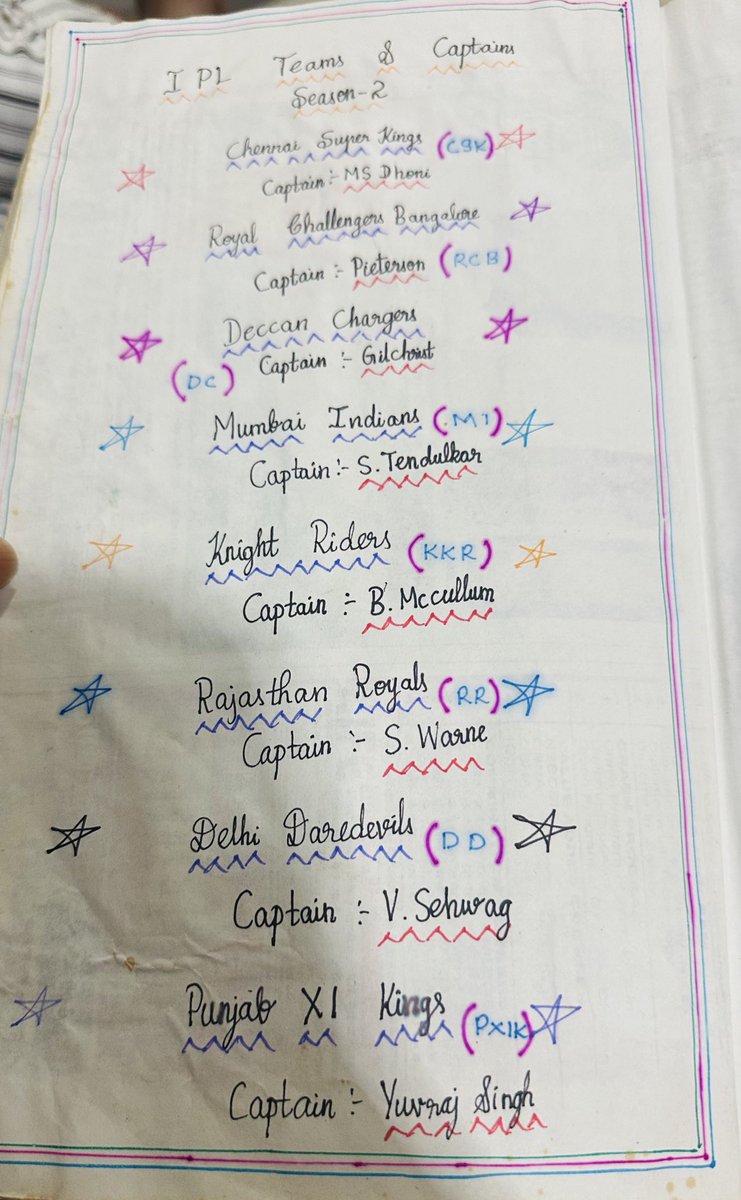 IPL Teams & Captains
Season-2
Chennai Super Kings (CSK)
Captain :- MS Dhoni
Royal Challengers Bangalore
Captain :- Pieterson (RCB)
Deccan Chargers
(DC) Captain :- Gilchrist
Mumbai Indians (MI)
Captain :- S. Tendulkar
Knight Riders (KKR)
Captain :- B. Mccullum
Rajasthan Royals (RR)
Captain :- S. Warne
Delhi Daredevils (DD)
Captain :- V. Sehwag
Punjab XI Kings (PXIK)
Captain :- Yuvraj Singh